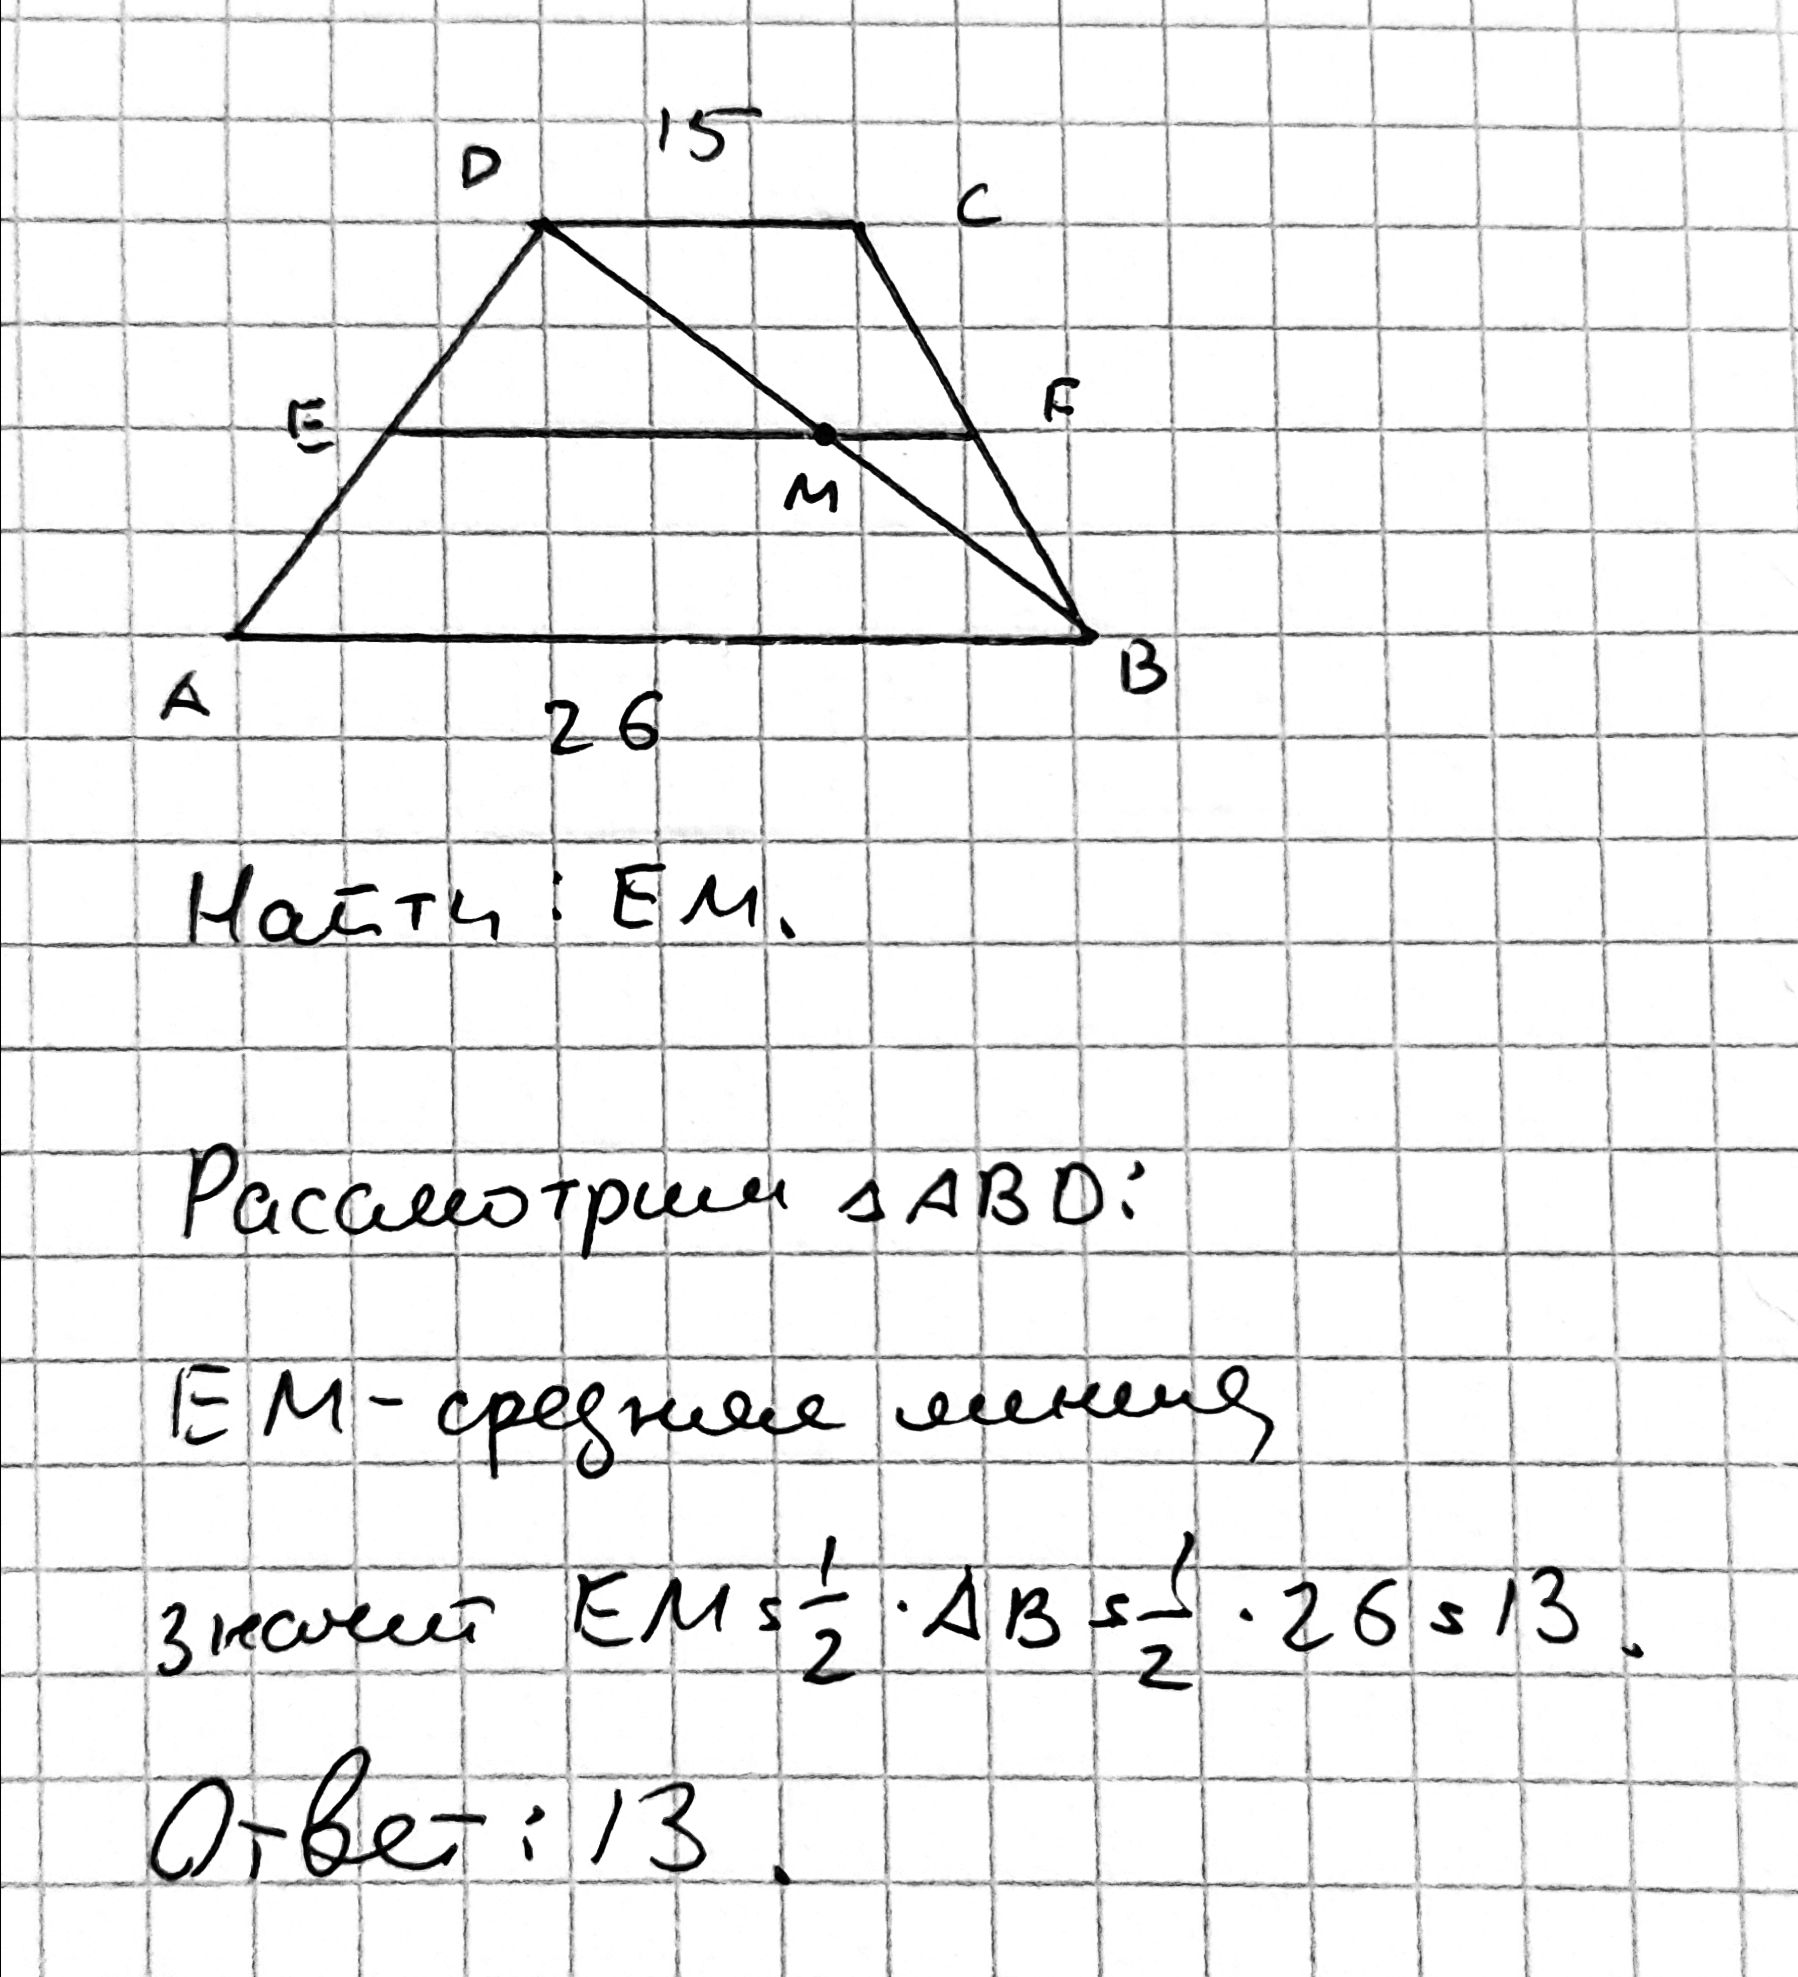 15
D
C
E
F
M
A
B
26
Найти: EM.
Рассмотрим △ABD:
EM - средняя линия,
значит EM = 1/2 · AB = 1/2 · 26 = 13.
Ответ: 13.